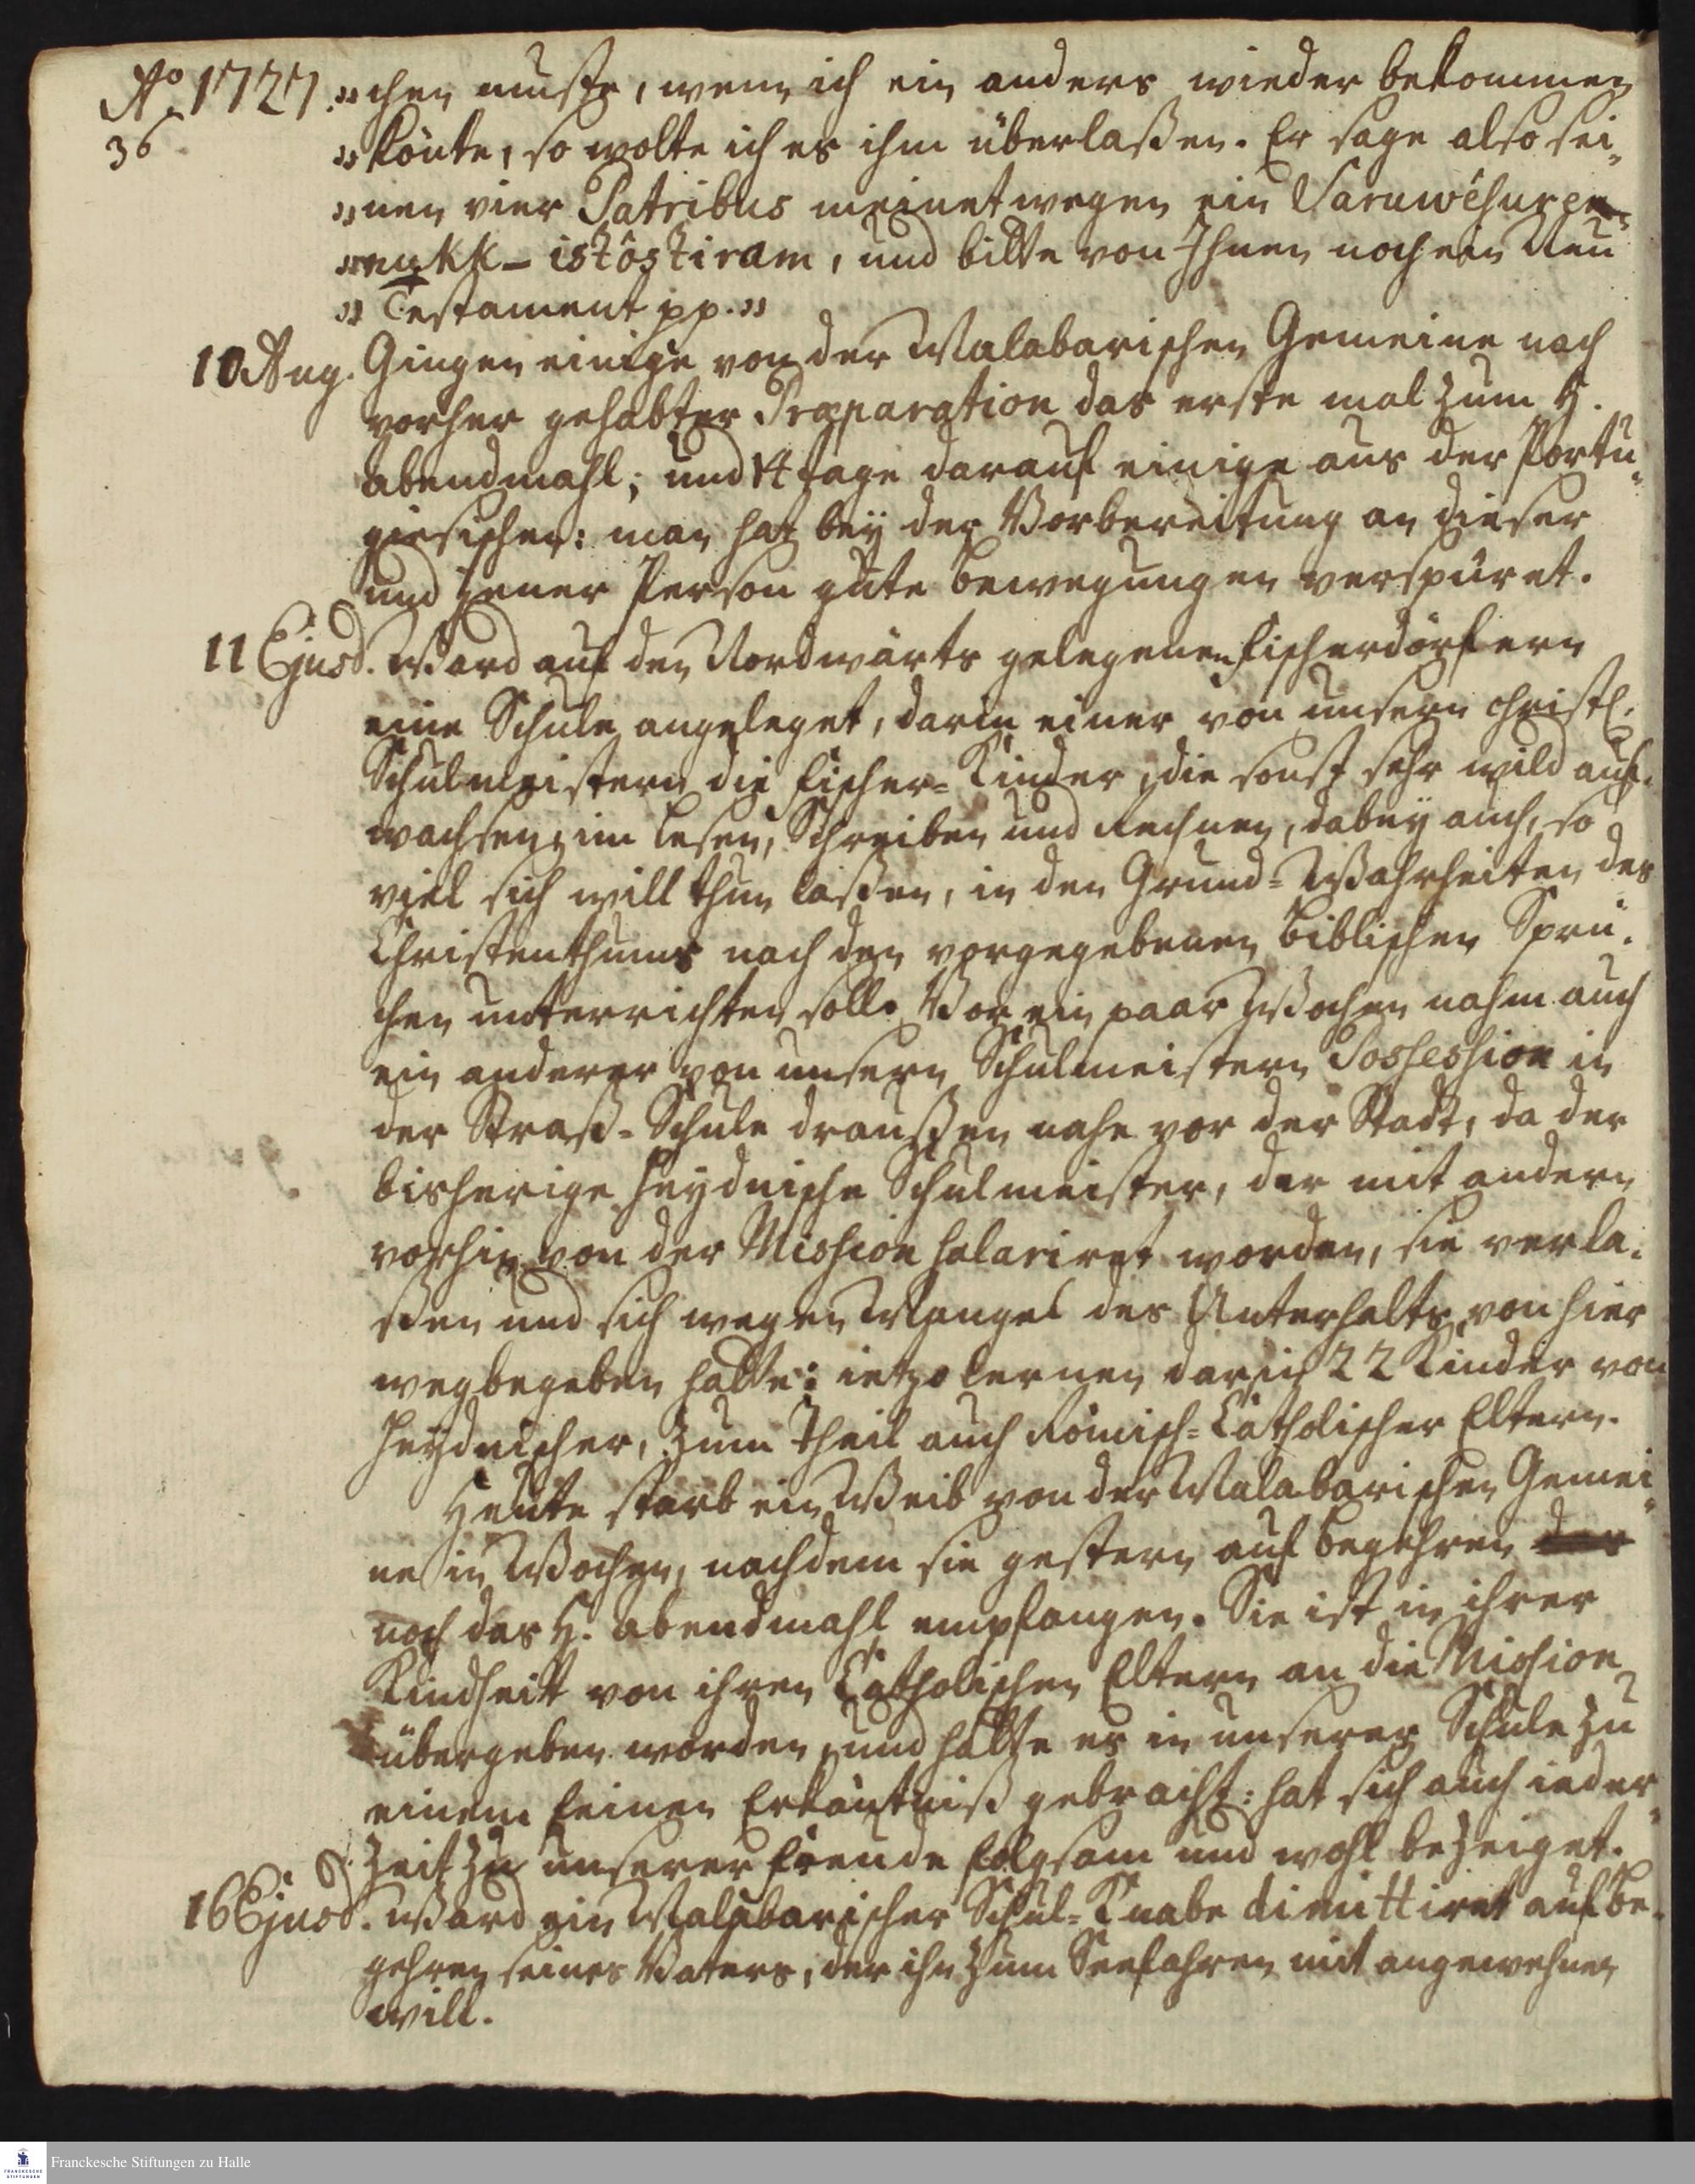 Aº. 1727.
36.
„chen muste, wenn ich ein anders wieder bekommen
„könte, so wolte ich es ihm überlaßen. Er sage also sei„
„nen vier Patribus meinetwegen ein Saruwêsuren„
„nukk-istôstiram, und bitte von Ihnen noch ein Neu
„Testament pp."
10 Aug. Gingen einige von der Malabarischen Gemeine nach
vorher gehabter Præparation das erste mal zum H.
Abendmahl; und 14 tage darauf einige aus der Portu„
giesischen: man hat bey der Vorbereitung an dieser
und jener Person gute Bewegungen verspüret.
11 Ejusd. Ward auf den Nordwärts gelegenen Fischerdörfern
eine Schule angeleget, darin einer von unsern christl.
Schulmeistern die Fischer-Kinder, die sonst sehr wild auf„
wachsen, im Lesen, Schreiben und Rechnen, dabey auch, so
viel sich will thun laßen, in den Grund-Wahrheiten des
Christenthums nach den vorgegebenen Biblischen Sprü„
chen unterrichten soll. Vor ein paar Wochen nahm auch
ein anderer von unsern Schulmeistern Possession in
der Straß-Schule draußen nahe vor der Stadt, da der
bisherige Heydnische Schulmeister, der mit andern
vorhin von der Mission salariret worden, sie verla„
ßen und sich wegen Mangel des Unterhalts von hier
wegbegeben hatte: ietzo lernen darin 22 Kinder von
Heydnischer, zum Theil auch Römisch-Catholischer Eltern.
Heute starb ein Weib von der Malabarischen Gemei„
ne in Wochen, nachdem sie gestern auf Begehren
noch das H. Abendmahl empfangen. Sie ist in ihrer
Kindheit von ihren Catholischen Eltern an die Mission
übergeben worden, und hatte es in unserer Schule zu
einem feinen Erkäntniß gebracht: hat sich auch ieder„
Zeit zu unserer Freude folgsam und wohl bezeiget.
16 Ejusd. Ward ein Malabarischer Schul-Knabe dimittiret auf Be„
gehren seines Vaters, der ihn zum Seefahren mit angewehnen
will.
Franckesche Stiftungen zu Halle